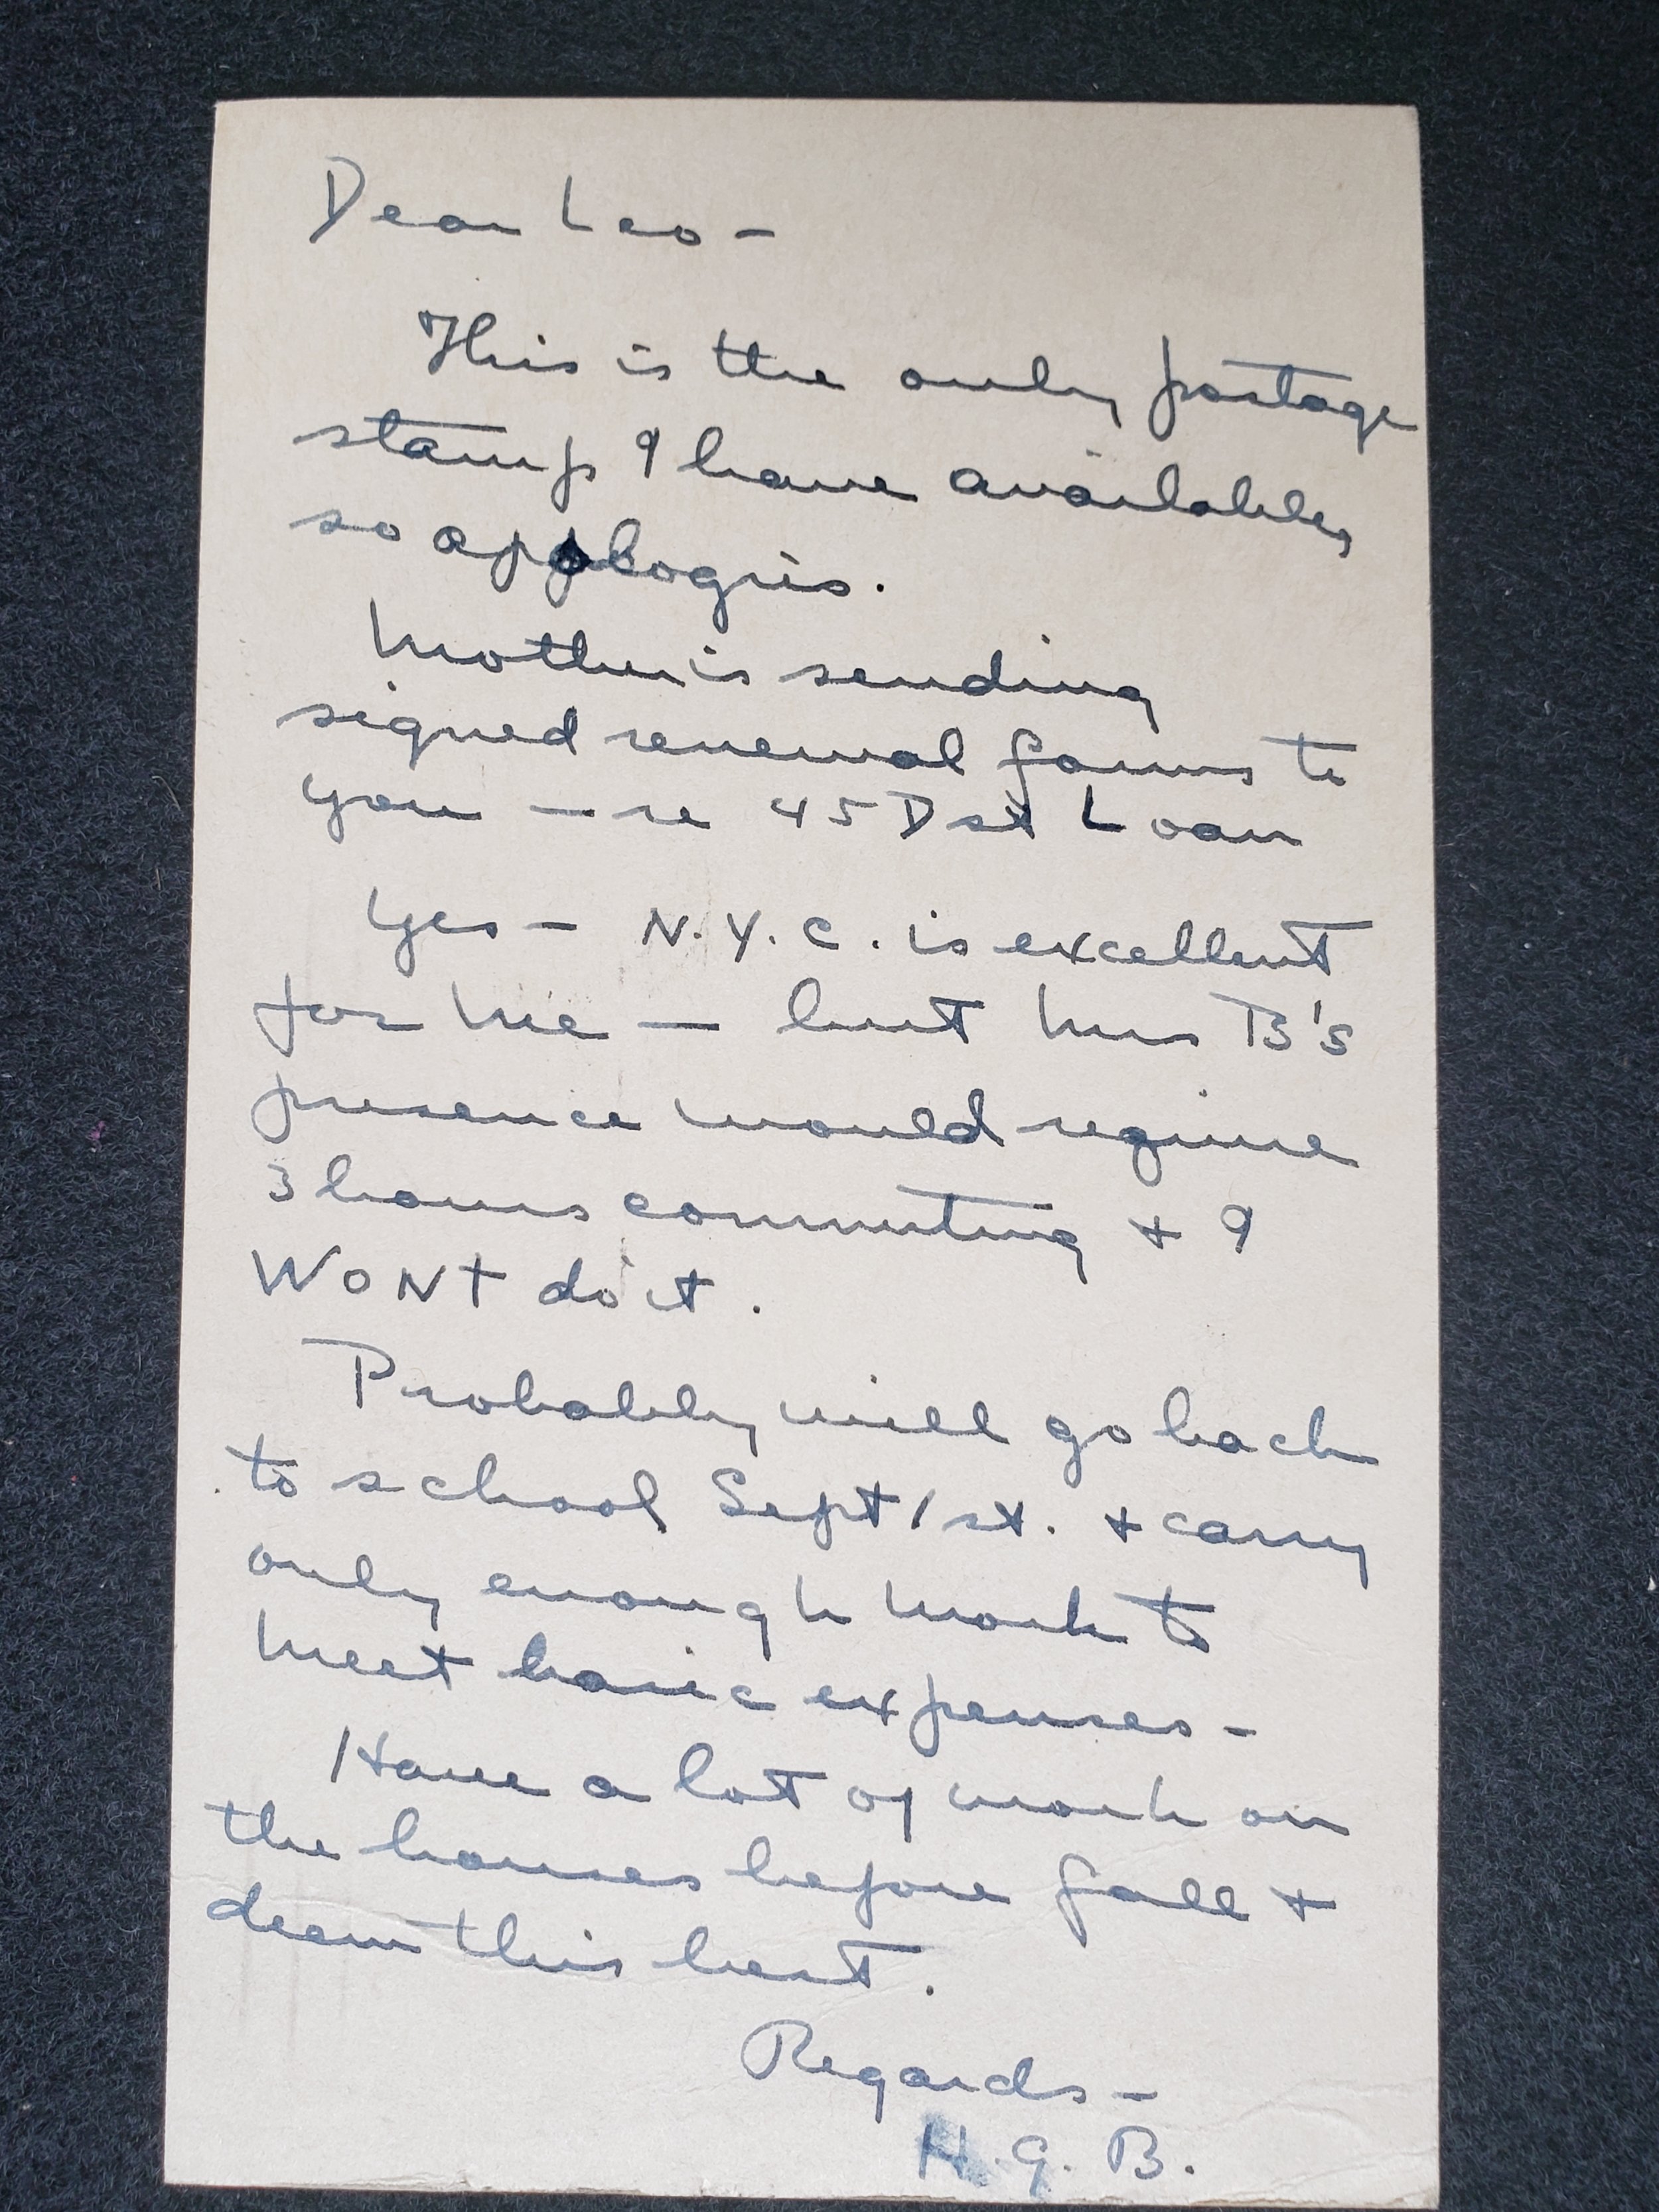 Dear Leo -
This is the only postage
stamp I have available,
so apologies.
Mother is sending
signed renewal forms to
you - re 45 D st Loan
Yes - N.Y.C. is excellent
for me - but Mrs B's
presence would require
3 hours commuting + I
WONT do it.
Probably will go back
to school Sept 1st. + carry
only enough work to
meet basic expenses -
Have a lot of work on
the houses before fall +
deem this best.
Regards -
H. G. B.